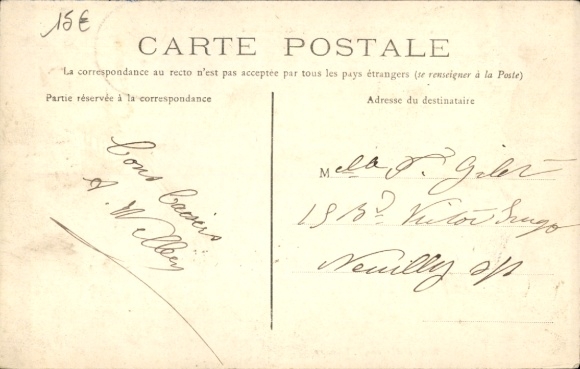 15€
CARTE POSTALE
La correspondance au recto n'est pas acceptée par tous les pays étrangers (se renseigner à la Poste)
Partie réservée à la correspondance
Adresse du destinataire
A. Welbey
Mlle P. Gilet
15 Bd Victor Hugo
Neuilly s/s